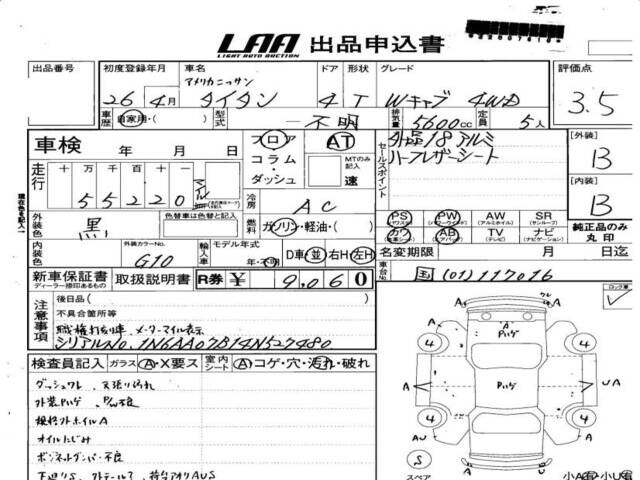 LAA 出品申込書
LIGHT AUTO AUCTION
出品番号 初度登録年月 車名 ドア 形状 グレード 評価点
アメリカニッサン
26年4月 タイタン 4 T Wキャブ 4WD 3.5
車歴 自家用・( ) 型式 不明 排気量 5600cc 定員 5人
車検 年 月 日 フロア AT セールスポイント 外品18アルミ 【外装】
コラム・ダッシュ MTのみ記入 速 ハーフレザーシート B
走行 十万 万 千 百 十
55220 冷房 AC 【内装】
B
外装色 黒 色替車は色替と記入 燃料 ガソリン・軽油・( )
PS PW AW SR 純正品のみ丸印
(パワステ) (パワーウィンドウ) (アルミホイル) (サンルーフ)
カワ AB TV ナビ
(本革シート) (エアバッグ) (テレビ) (ナビゲーション)
内装色 外装カラーNo. G10 輸入車 モデル年式 年・不明 D車 並 右H・左H 名変期限 月 日迄
新車保証書 取扱説明書 R券 ¥ 9,060 車台No. 国(01)117016
ディーラー捺印あるもの
注意事項 後日品( )
不具合箇所等
職権打刻車 メーターマイル表示
シリアルNo.1N6AA07B14N527480
ロック車
検査員記入 ガラス A・X要ス 室内シート A コゲ・穴・汚れ・破れ
ダッシュワレ、天張り汚れ
外装Pハゲ P/W不良
オイルにじみ
ボンネットダンパー不良
A Pハゲ
4 4
A A UA
Pハゲ
4 4
AU A
S スペア